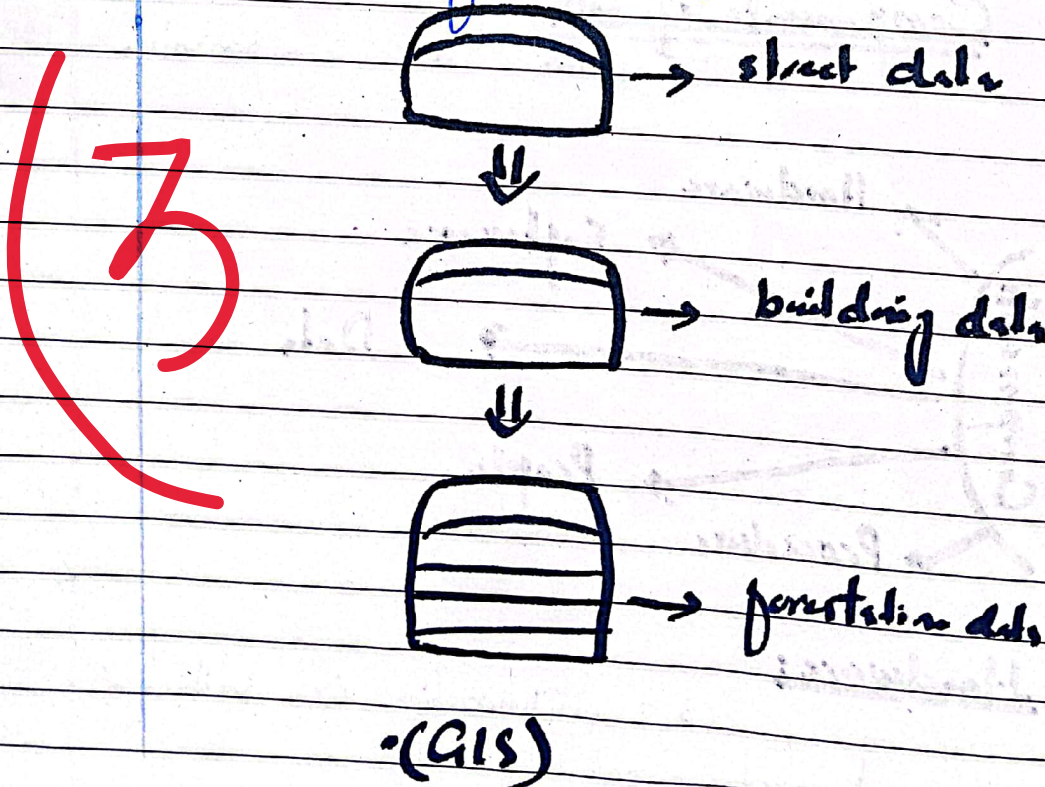 → street data
3
→ building data
→ forestation data
(GIS)